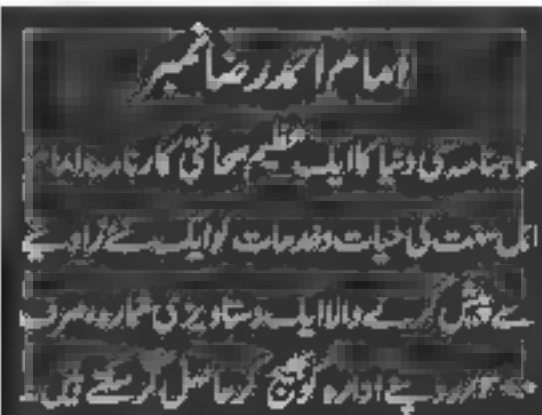 امام احمد رضا نمبر
ماہنامہ کی دنیا کا ایک عظیم صحافتی کارنامہ امام
اہل سنت کی حیات و خدمات کو ایک نئے زاویے
سے پیش کرنے والا ایک دستاویزی شمارہ صرف
روپے ادارہ کو بھیج کر حاصل کر سکتے ہیں۔